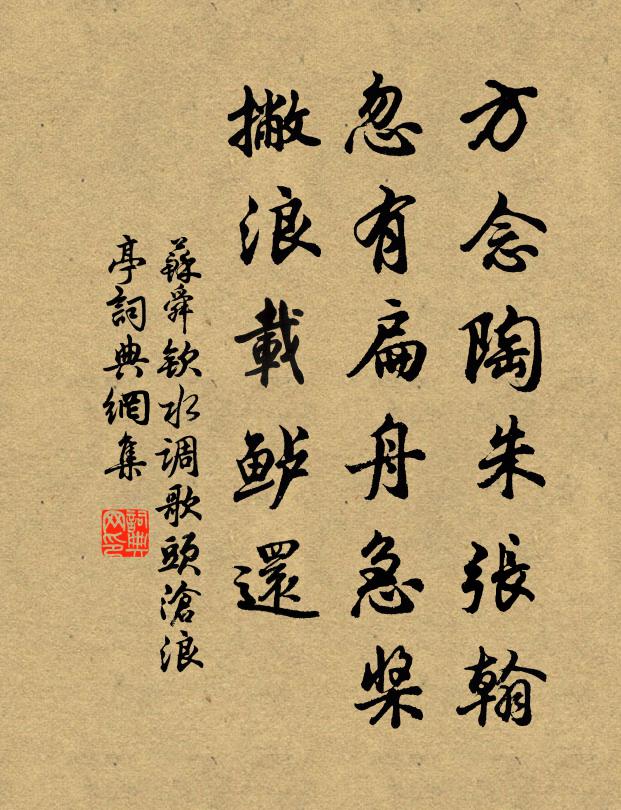 方念陶朱張翰
忽有扁舟急槳
撇浪載鲈還
蘇舜欽水调歌頭滄浪
亭詞典網集
詞典
网印